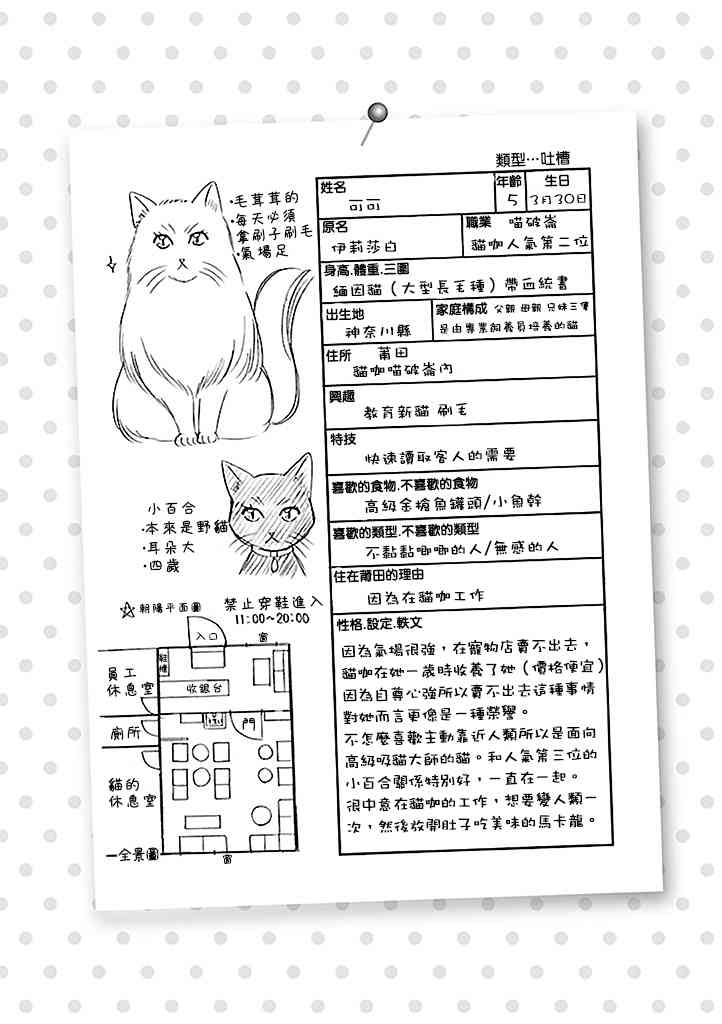 類型…吐槽
·毛茸茸的
·每天必須
拿刷子刷毛
·氣場足
姓名
可可
年齡
5
生日
3月30日
原名
伊莉莎白
職業 喵破崙
貓咖人氣第二位
身高.體重.三圍
緬因貓（大型長毛種）帶血統書
出生地
神奈川縣
家庭構成 父親 母親 兄妹三隻
是由專業飼養員培養的貓
住所 莆田
貓咖喵破崙內
興趣
教育新貓 刷毛
特技
快速讀取客人的需要
喜歡的食物.不喜歡的食物
高級金槍魚罐頭/小魚幹
喜歡的類型.不喜歡的類型
不黏黏唧唧的人/無感的人
住在莆田的理由
因為在貓咖工作
性格.設定.軼文
因為氣場很強，在寵物店賣不出去，
貓咖在她一歲時收養了她（價格便宜）
因為自尊心強所以賣不出去這種事情
對她而言更像是一種榮譽。
不怎麼喜歡主動靠近人類所以是面向
高級吸貓大師的貓。和人氣第三位的
小百合關係特別好，一直在一起。
很中意在貓咖的工作，想要變人類一
次，然後放開肚子吃美味的馬卡龍。
小百合
·本來是野貓
·耳朵大
·四歲
☆ 朝陽平面圖
禁止穿鞋進入
11:00~20:00
入口
窗
員工
休息室
鞋櫃
收銀台
廁所
門
貓的
休息室
一全景圖
窗